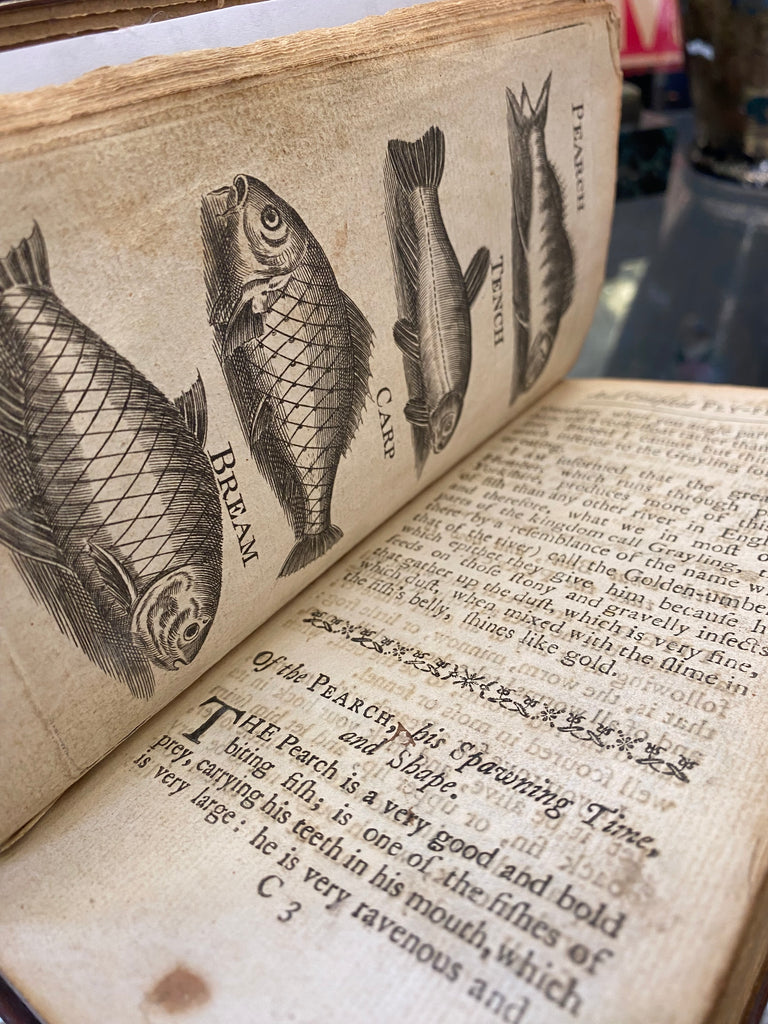 PEARCH
TENCH
CARP
BREAM
FLY-F
inferior to the Grayling for
I am informed that the grea
which runs through
produces more of this
of fish than any other river in Engl
and therefore, what we in most o
parts of the kingdom call Grayling,
there by a resemblance of the name w
that of the river) call the Golden-umber
which epithet they give him because h
feeds on those ſtony and gravelly inſects
that gather up the duſt, which is very fine,
which duſt, when mixed with the ſlime in
the fiſh's belly, ſhines like gold.
Of the PEARCH, his Spawning Time,
and Shape.
THE Pearch is a very good and bold
biting fiſh; is one of the fiſhes of
prey, carrying his teeth in his mouth, which
is very large: he is very ravenous and
C 3